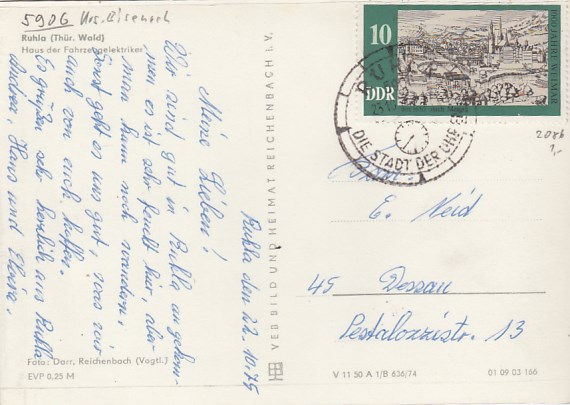 5906 Krs. Eisenach
Ruhla (Thür. Wald)
Haus der Fahrzeugelektriker
Ruhla den 22.10.75
Meine Lieben!
Wir sind gut in Ruhla angekom-
men es ist sehr feucht hier, aber
man kann noch wandern,
Sonst geht es uns gut, was wir
auch von euch hoffen.
Es grüßen sehr herzlich aus Ruhla
Andrea, Hans und
Foto: Darr, Reichenbach (Vogtl.)
EVP 0,25 M
VEB BILD UND HEIMAT REICHENBACH I. V.
10
DDR
1000 JAHRE WEIMAR
RUHLA
DIE STADT DER UHREN
2086
1,-
E. Neid
45 Dessau
Pestalozzistr. 13
V 11 50 A 1/B 636/74
01 09 03 166